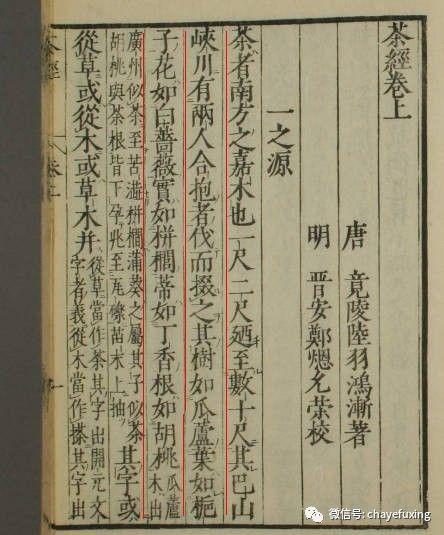 茶經卷上
唐 竟陵陸羽鴻漸著
明 晉安鄭熜允榮校
一之源
茶者南方之嘉木也一尺二尺廼至數十尺其巴山
峽川有兩人合抱者伐而掇之其樹如瓜蘆葉如梔
子花如白薔薇實如栟櫚蒂如丁香根如胡桃瓜蘆木出
廣州似茶至苦澁栟櫚蒲葵之屬其子似茶胡桃與茶根皆下孕兆至瓦礫苗木上抽其字或
從草或從木或草木并從草當作茶其字出開元文字者義從木當作搽其字出
茶經
微信号: chayefuxing